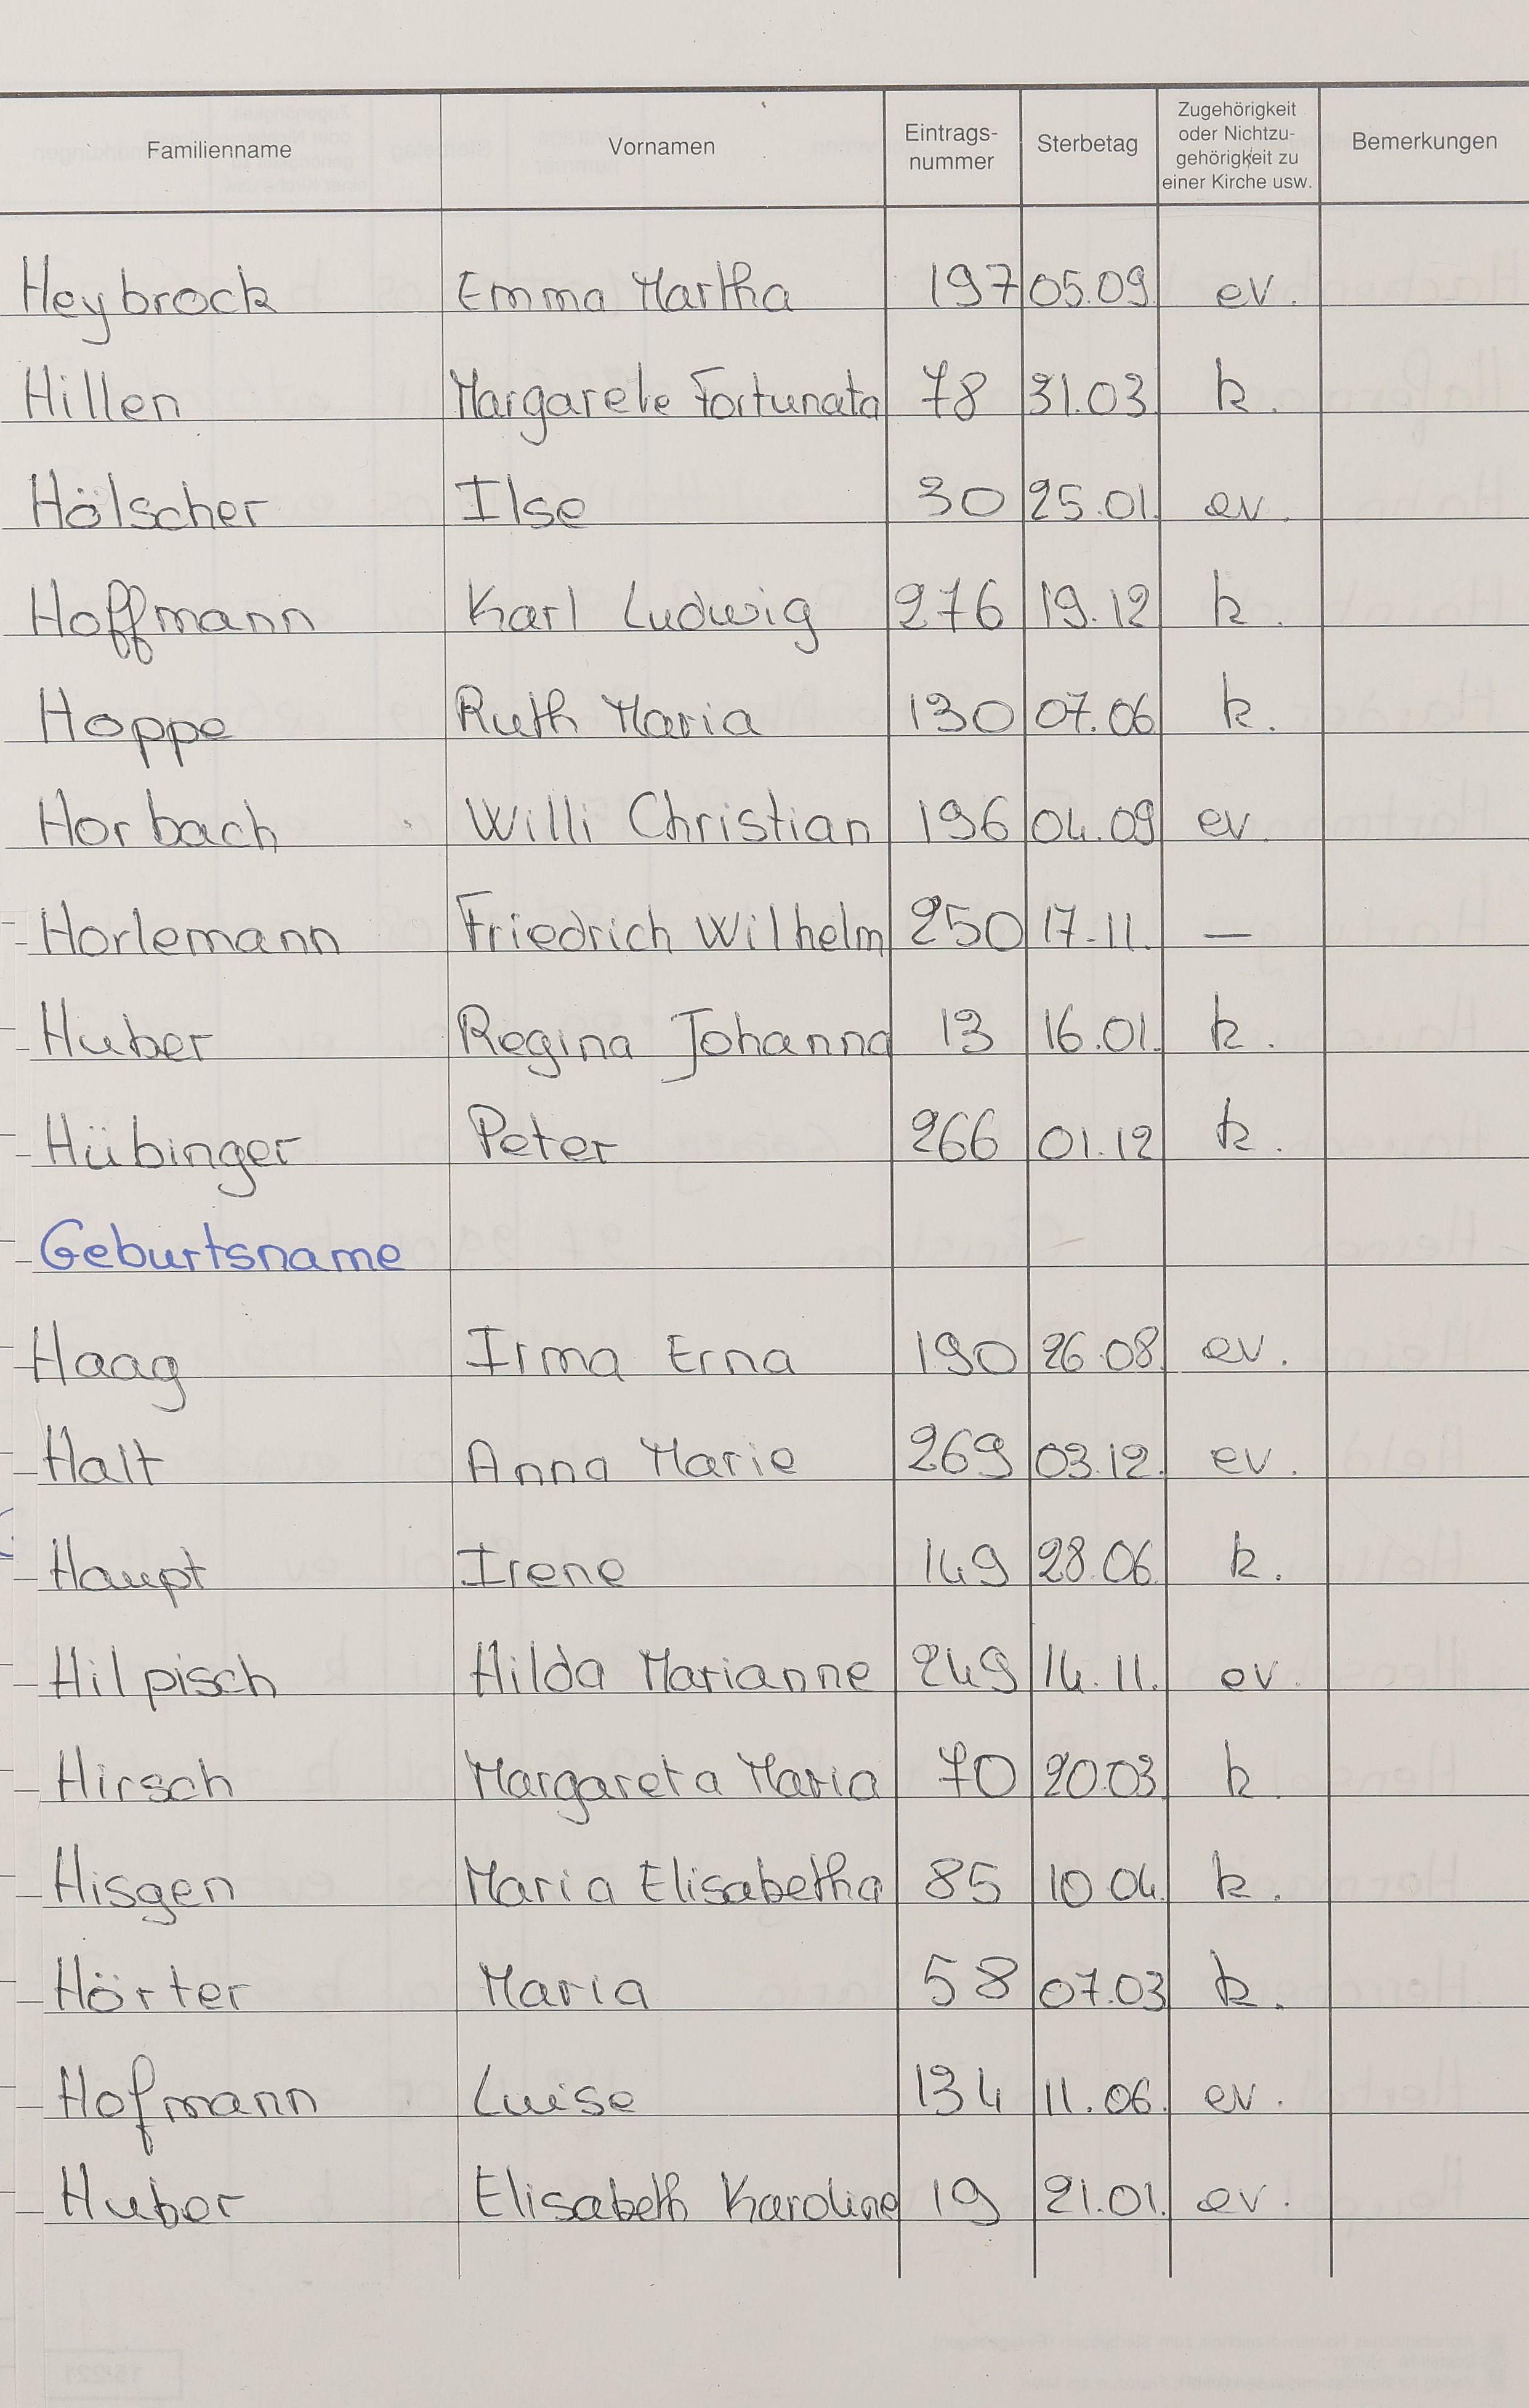 Familienname Vornamen Eintrags-nummer Sterbetag Zugehörigkeit oder Nichtzu-gehörigkeit zu einer Kirche usw. Bemerkungen
Heybrock Emma Martha 197 05.09 ev.
Hillen Margarete Fortunata 78 31.03 k.
Hölscher Ilse 30 25.01. ev.
Hoffmann Karl Ludwig 276 19.12 k.
Hoppe Ruth Maria 130 07.06 k.
Horbach Willi Christian 196 04.09 ev.
Horlemann Friedrich Wilhelm 250 17.11. —
Huber Regina Johanna 13 16.01. k.
Hübinger Peter 266 01.12 k.
Geburtsname
Haag Irma Erna 190 26.08. ev.
Halt Anna Marie 269 03.12. ev.
Haupt Irene 149 28.06. k.
Hilpisch Hilda Marianne 249 14.11. ev.
Hirsch Margareta Maria 70 20.03. k.
Hisgen Maria Elisabetha 85 10.04. k.
Hörter Maria 58 07.03 k.
Hofmann Luise 134 11.06. ev.
Huber Elisabeth Karoline 19 21.01. ev.